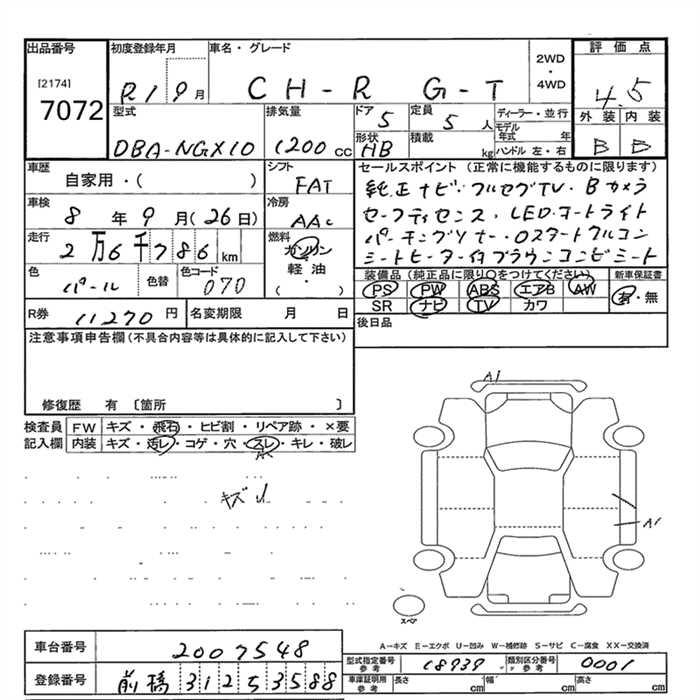 出品番号 初度登録年月 車名・グレード 2WD・4WD 評価点
[2174]
7072 R1 9月 CH-R G-T 4.5
型式 排気量 ドア 定員 ディーラー・並行 外装 内装
DBA-NGX10 1200cc 5 5人 モデル年式 年 B B
形状 積載 kg ハンドル 左・右
HB
車歴 シフト セールスポイント (正常に機能するものに限ります)
自家用・( ) FAT 純正ナビ・フルセグTV・Bカメラ
車検 冷房 セーフティセンス・LEDオートライト
8年9月(26日) AAC
走行 燃料 パーキングソナー・
2万6千786km ガソリン・軽油・( ) シートヒーター付ブラウンコンビシート
色 色替 色コード 装備品 (純正品に限り○をつけてください) 新車保証書
パール 070 PS PW ABS エアB AW 有・無
R券 11270円 名変期限 月 日 SR ナビ TV カワ
後日品
注意事項申告欄 (不具合内容等は具体的に記入して下さい)
修復歴 有 〔箇所 〕
検査員 FW キズ・飛石・ヒビ割・リペア跡・×要
記入欄 内装 キズ・汚レ・コゲ・穴・スレ・キレ・破レ
A1
キズ
A1
スペア
A-キズ E-エクボ U-凹み W-補修跡 S-サビ C-腐食 XX-交換済
車台番号 2007548
型式指定番号 参考 18939 類別区分番号 参考 0001
登録番号 前橋 312 5 3588
車庫証明用 参考 長さ cm 幅 cm 高さ cm